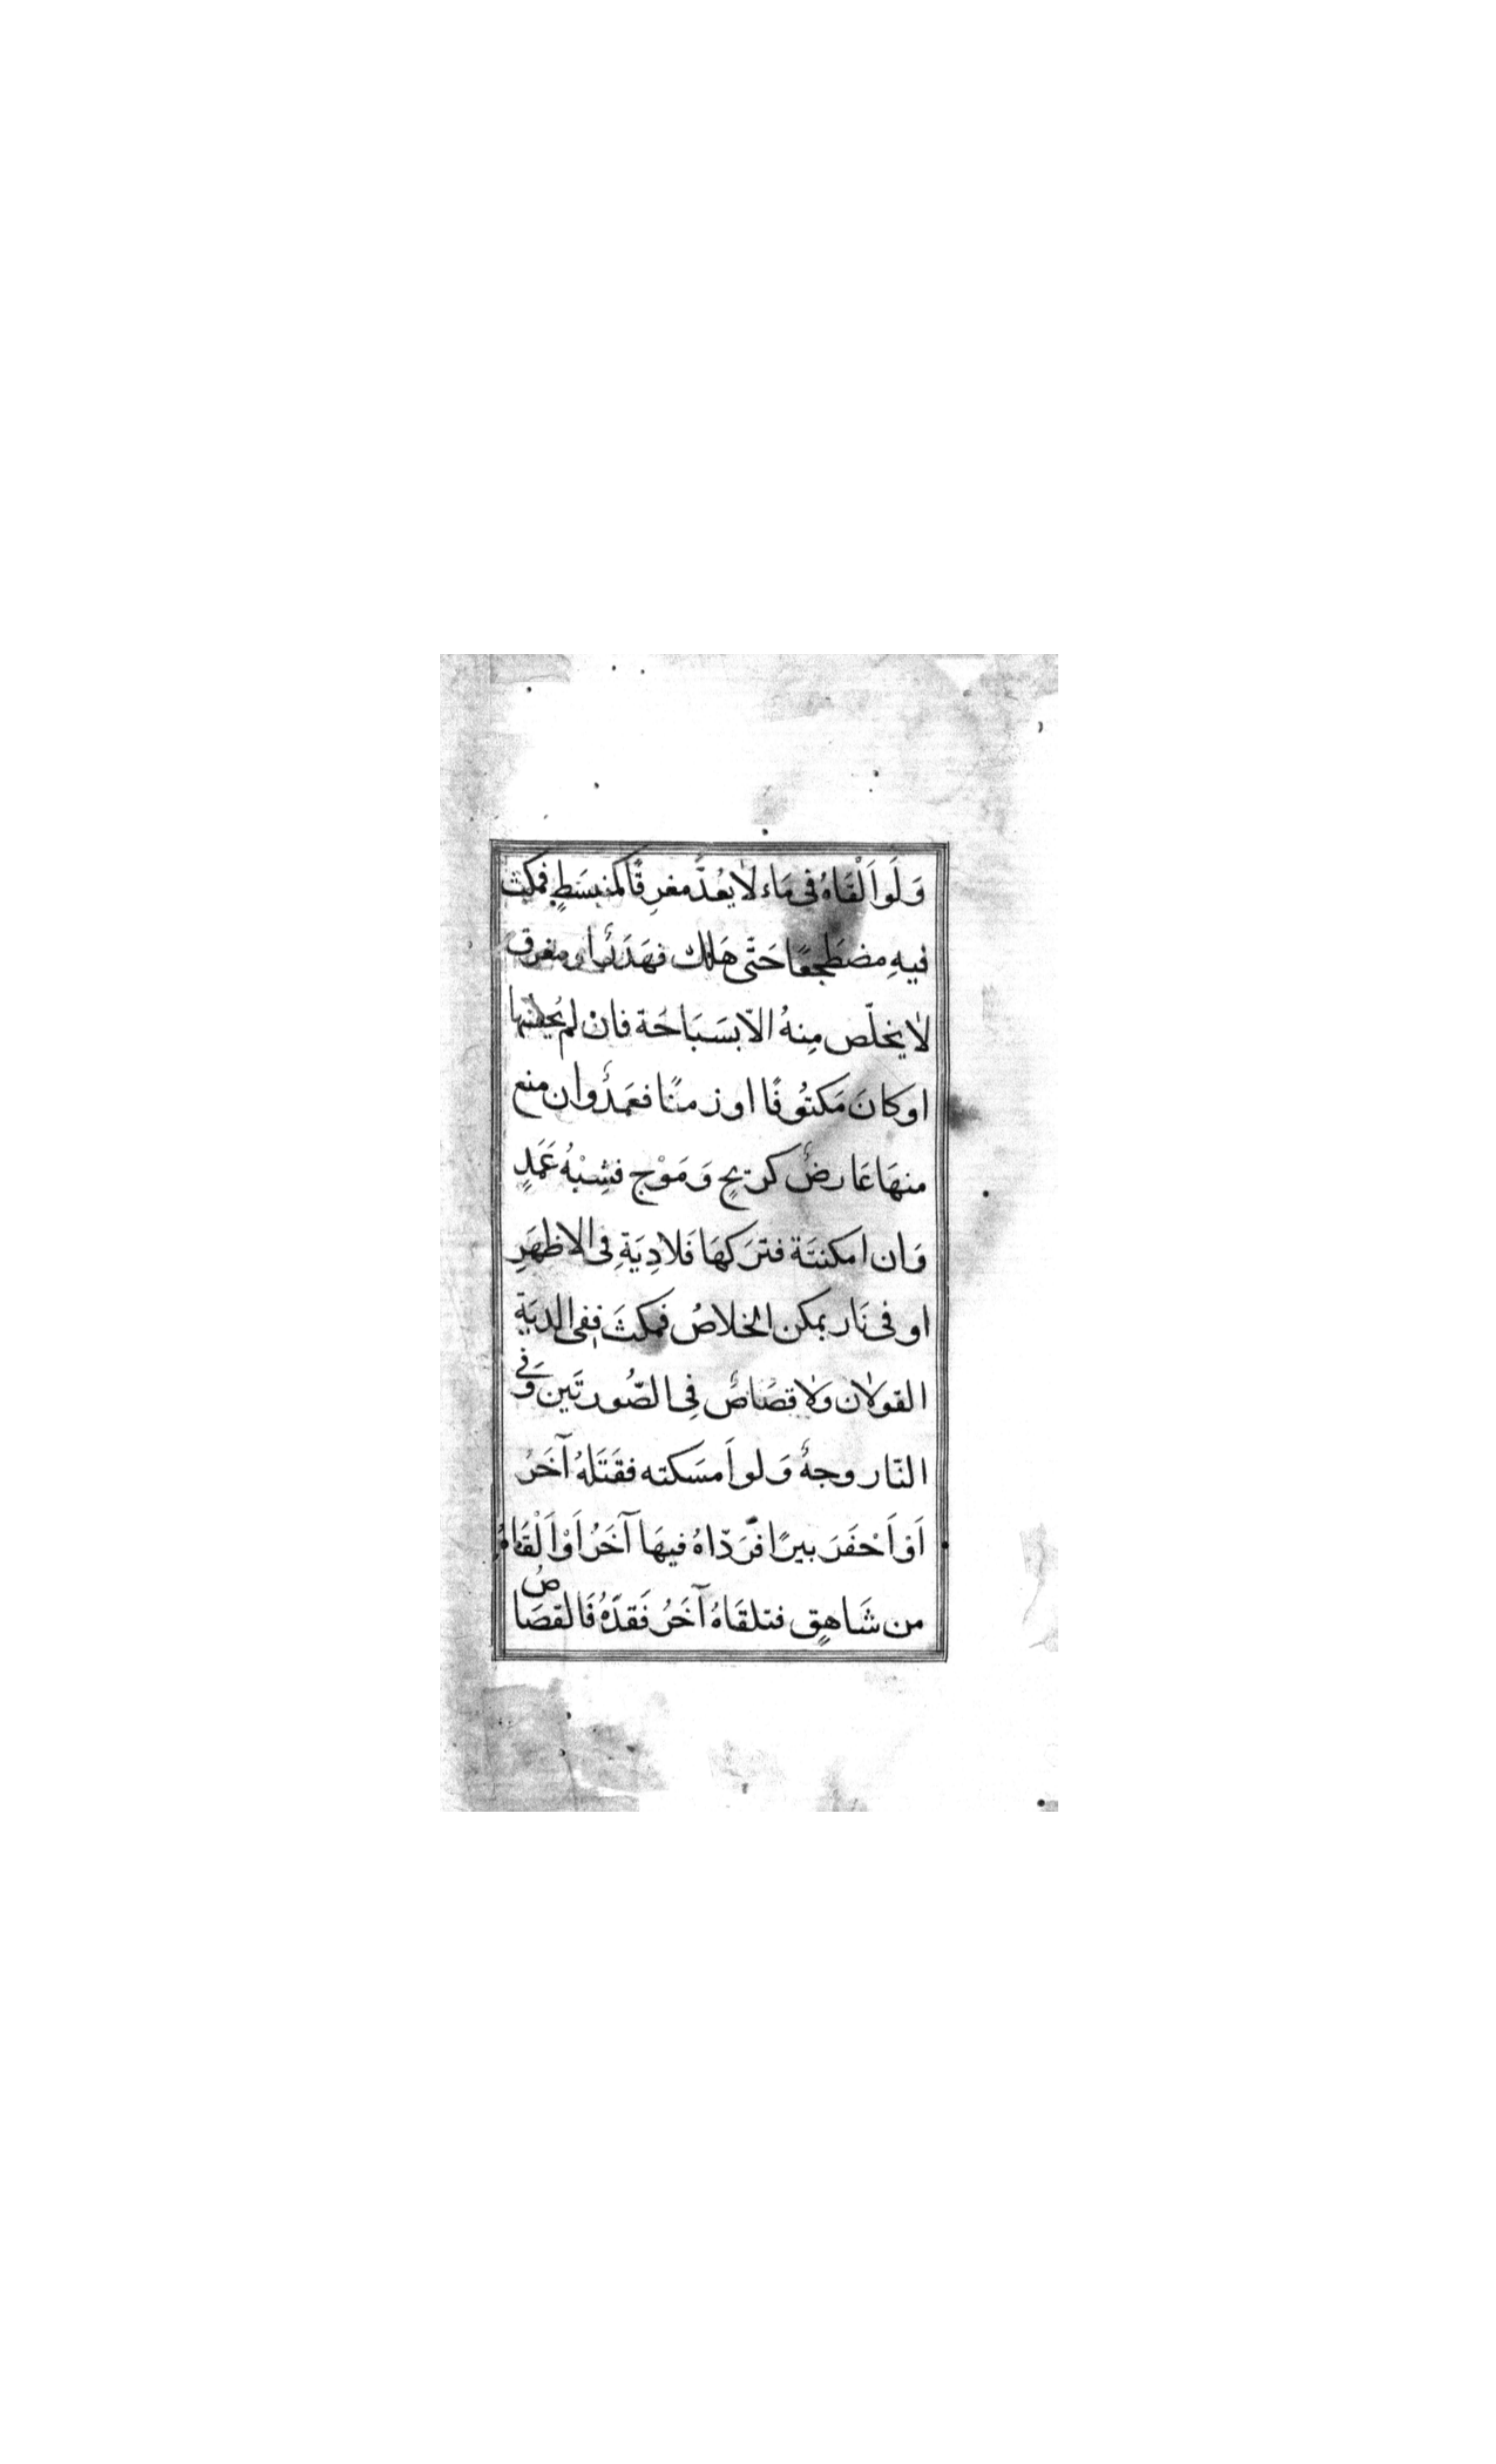 وَلَو اَلْقَاهُ فى مَاء لَا يعُدّ مغرِقًا كمنبسَطٍ فمكث
فيهِ مضطَجعًا حَتّى هَلك فهَدَرٌ او مغرق
لَا يخلّص مِنهُ الاّ بسَبَاحَة فان لم يُحسنها
او كانَ مَكتُوفًا او زمنًا فعَمَدٌ وان منع
منهَا عَارضٌ كريحٍ وَمَوْج فشِبْهُ عَمَدٍ
وَان امكنتَة فترَكهَا فَلا دِيَةِ فى الاظهَرِ
او فى نَار يمكن الخلاصُ فمكثَ ففى الديَةِ
القولَان وَلَا قصَاصٌ فِى الصُّورتَين وَفى
النّار وجهٌ وَلو اَمسَكته فقَتَلهُ آخَرُ
اَوْ اَحْفَرَ بيرًا فرَدّاهُ فيهَا آخَرُ اَوْ اَلْقَاهُ
من شَاهِقٍ فتلقَاهُ آخَرُ فَقدّهُ فَالقصَاصُ